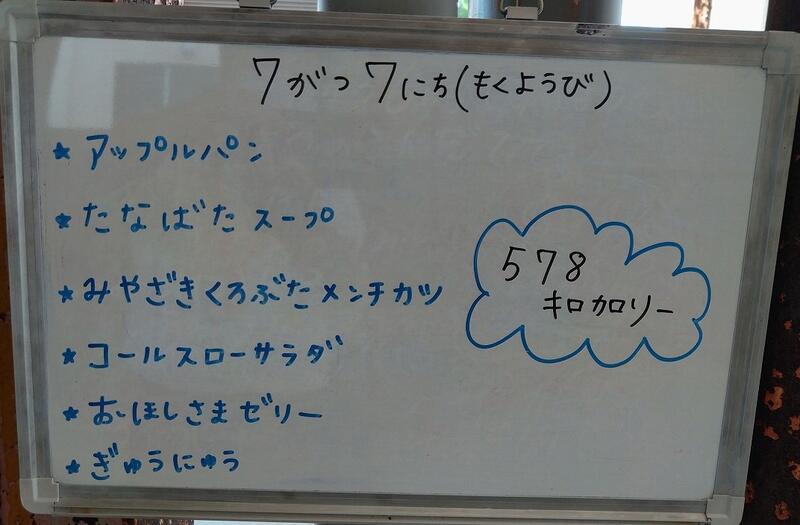 7がつ7にち(もくようび)
★アップルパン
★たなばたスープ
★みやざきくろぶたメンチカツ
★コールスローサラダ
★おほしさまゼリー
★ぎゅうにゅう
578
キロカロリー